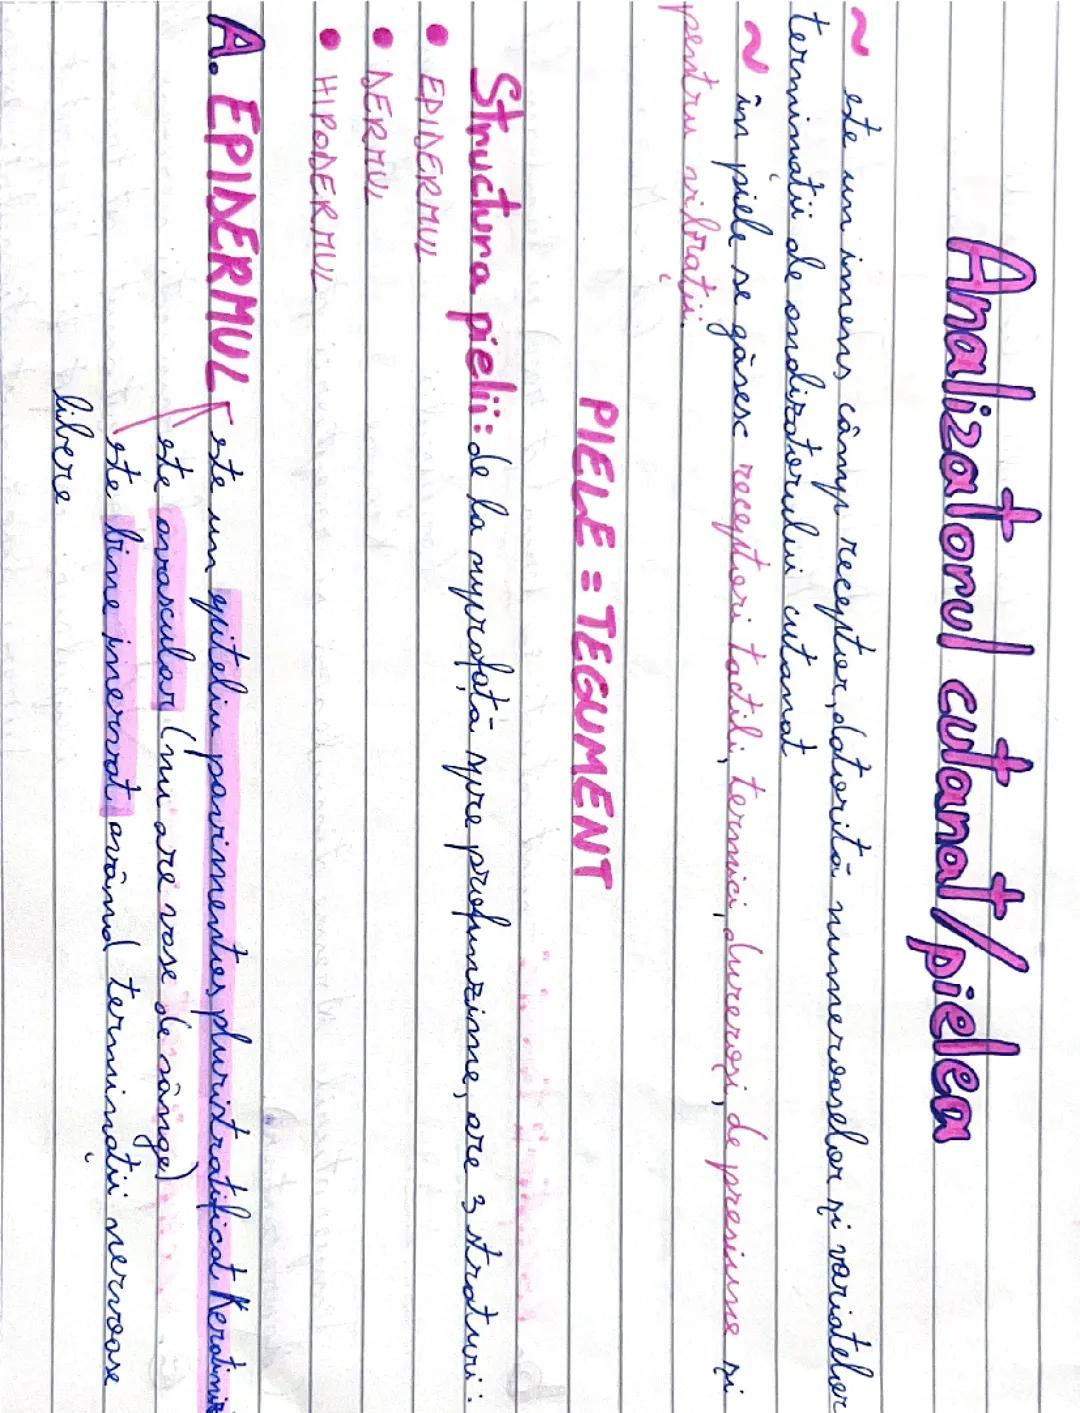 Analizatorul cutanat/pielea
~ este un imens câmp receptor, datorită numeroaselor și variatelor
terminații de analizatorului cutanat
~ în piele se găsesc receptori tactili, termici, dureroși, de presiune și
pentru vibrații.
PIELE = TEGUMENT
Structura pielii: de la suprafață spre profunzime, are 3 straturi:
• EPIDERMUL
• DERMUL
• HIPODERMUL
A. EPIDERMUL este un epiteliu pavimentos, pluristratificat keratiniz
este avascular (nu are vase de sânge)
este bine inervat, având terminații nervoase
libere